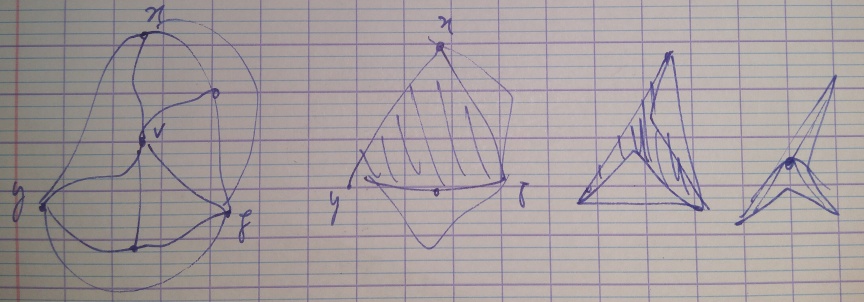 x
v
y
z
x
y
z